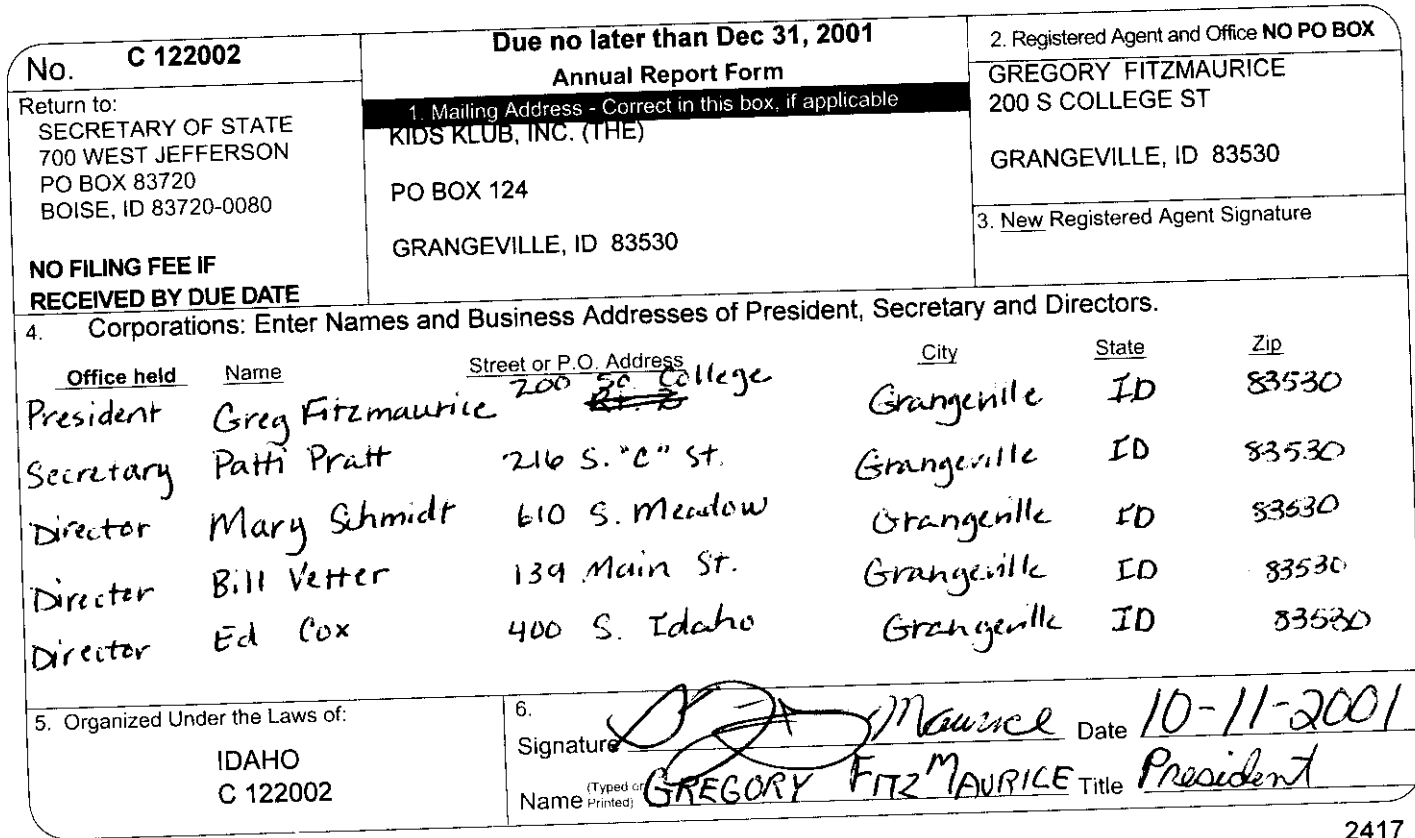 No. C 122002
Return to:
SECRETARY OF STATE
700 WEST JEFFERSON
PO BOX 83720
BOISE, ID 83720-0080
NO FILING FEE IF
RECEIVED BY DUE DATE
Due no later than Dec 31, 2001
Annual Report Form
1. Mailing Address - Correct in this box, if applicable
KIDS KLUB, INC. (THE)
PO BOX 124
GRANGEVILLE, ID 83530
2. Registered Agent and Office NO PO BOX
GREGORY FITZMAURICE
200 S COLLEGE ST
GRANGEVILLE, ID 83530
3. New Registered Agent Signature
4. Corporations: Enter Names and Business Addresses of President, Secretary and Directors.
Office held Name Street or P.O. Address City State Zip
President Greg Fitzmaurice 200 So. College Grangeville ID 83530
Secretary Patti Pratt 216 S. "C" St. Grangeville ID 83530
Director Mary Schmidt 610 S. Meadow Grangeville ID 83530
Director Bill Vetter 139 Main St. Grangeville ID 83530
Director Ed Cox 400 S. Idaho Grangeville ID 83530
5. Organized Under the Laws of:
IDAHO
C 122002
6.
Signature Maurice Date 10-11-2001
Name (Typed or Printed) GREGORY FITZMAURICE Title President
2417